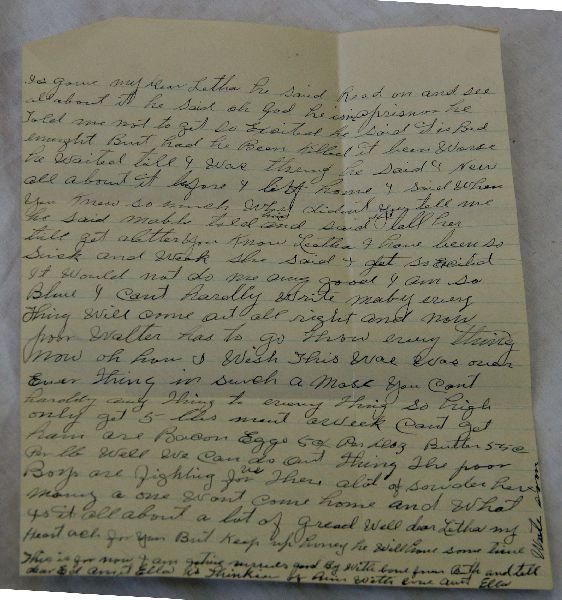 Is gone my dear Letha he said Read on and see
all about it he said oh God he is a prisnor he
Told me not to get so Exsited he said it is Bad
enought But had he Been killed it been Worse
he Waited till I Was threw he said I New
all about it before I left home I said When
You Knew so much Why didint You tell me
he said Mable told and said dont tell her
till get a letter You Know Leatha I have been so
Sick and Weak she said I get so Excited
it Would not do me any good I am so
Blue I Cant hardly Write maby every
thing Will come out all right and now
poor Walter has to go threw every thing
now oh how I Wish This War Was over
Ever thing in such a Mess You Cant
hardly any thing to every thing so high
only get 5 lbs meat a week Cant get
ham are Bacon Eggs 54 Per doz Butter 55¢
Per lb Well We Can do out thing the poor
Boys are fighting for us There a lot of
many a one Wont come home and What
Is it all about a lot of gread Well dear Letha my
heart ach for You But Keep up honey he Will home some time
This is for now I am geting nerves good By With love from Both and tell
dear Ed Aunt Ella is Thinken of him With love Aunt Ella
Write soon